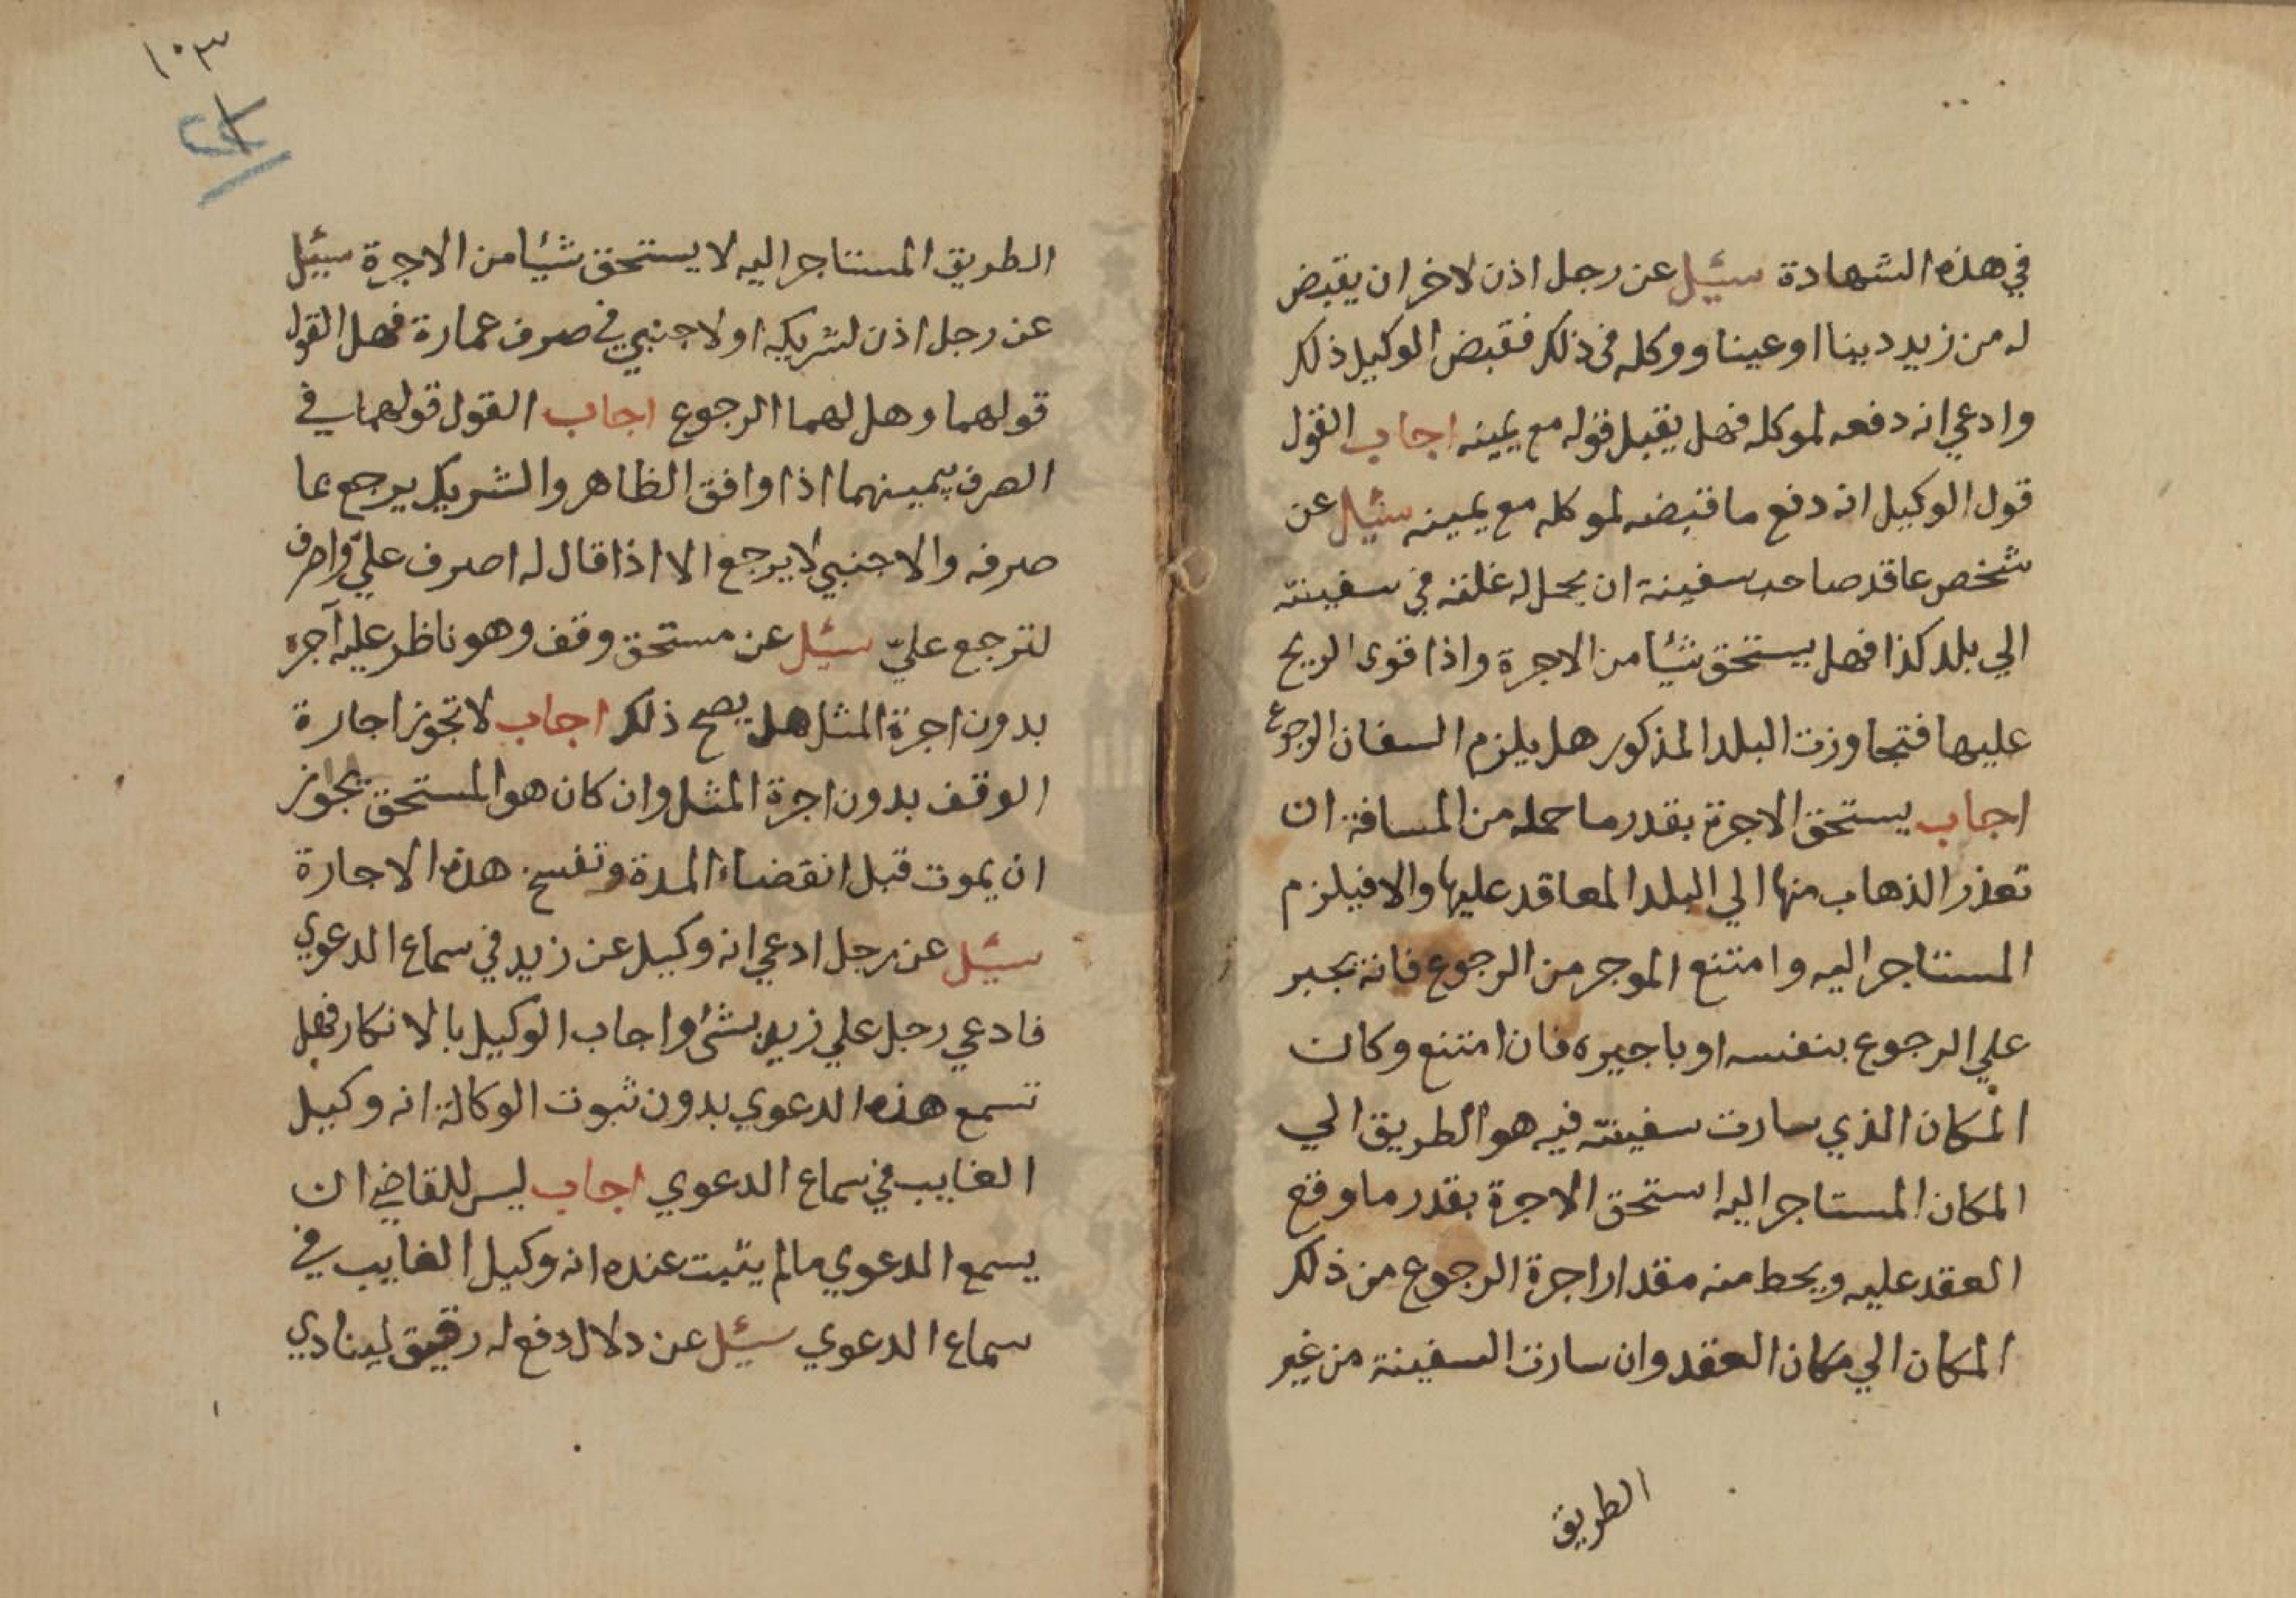 في هذه الشهادة سئيل عن رجل اذن لاخر ان يقبض
له من زيد دينا او عينا ووكله في ذلك فقبض الوكيل ذلك
وادعي انه دفعه لموكله فهل يقبل قوله مع يمينه اجاب القول
قول الوكيل انه دفع ما قبضه لموكله مع يمينه سئيل عن
شخص عاقد صاحب سفينة ان يحمل له غلته في سفينته
الي بلد كذا فهل يستحق شيئا من الاجرة واذا قوى الريح
عليها فتجاوزت البلد المذكور هل يلزم السفان الرجوع
اجاب يستحق الاجرة بقدر ما حمله من المسافة ان
تعذر الذهاب منها الي البلد المعاقد عليها والا فيلزم
المستاجر اليه وامتنع الموجر من الرجوع فانه يجبر
علي الرجوع بنفسه او باجيره فان امتنع وكان
المكان الذي سارت سفينته فيه هو الطريق الي
المكان المستاجر اليه استحق الاجرة بقدر ما وقع
العقد عليه ويحط منه مقدار اجرة الرجوع من ذلك
المكان الي مكان العقد وان سارت السفينة من غير
الطريق
١٠٣
الطريق المستاجر اليه لا يستحق شيئا من الاجرة سئيل
عن رجل اذن لشريكه او لاجنبي في صرف عمارة فهل القول
قولهما وهل لهما الرجوع اجاب القول قولهما في
الصرف بيمينهما اذا وافق الظاهر والشريك يرجع بما
صرفه والاجنبي لا يرجع الا اذا قال له اصرف عليّ واصرف
لترجع عليّ سئيل عن مستحق وقف وهو ناظر عليه آجره
بدون اجرة المثل هل يصح ذلك اجاب لا تجوز اجارة
الوقف بدون اجرة المثل وان كان هو المستحق بجواز
ان يموت قبل انقضاء المدة وتفسخ هذه الاجارة
سئيل عن رجل ادعي انه وكيل عن زيد في سماع الدعوي
فادعي رجل علي زيد بشئ واجاب الوكيل بالانكار فهل
تسمع هذه الدعوي بدون ثبوت الوكالة انه وكيل
الغايب في سماع الدعوي اجاب ليس للقاضي ان
يسمع الدعوي مالم يثبت عنده انه وكيل الغايب في
سماع الدعوي سئيل عن دلال دفع له رقيق لينادي